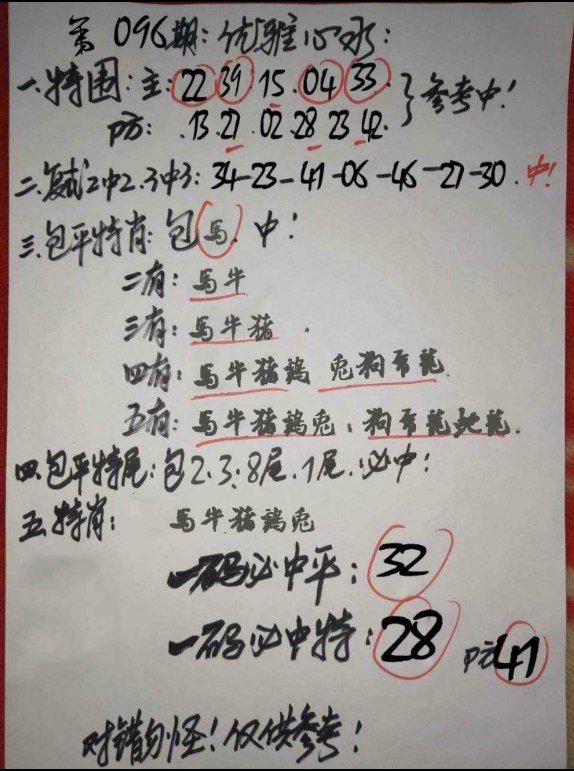 第096期:优雅心水:
一.特围:主:22 39 15.04 33.
参考中!
防:.13.27.02.28 23 42.
二.复式2中2.3中3:34-23-41-06-46-27-30.中!
三.包平特肖:包馬.中!
二有:馬牛
三有:馬牛猪.
四有:馬牛猪鸡 兔狗 龍.
五有:馬牛猪鸡兔,狗 龍
四.包平特尾:包2.3.8尾.1尾.必中!
五特肖: 馬牛猪鸡兔
一码必中平:32
一码必中特:28 防41
对错勿怪!仅供参考!